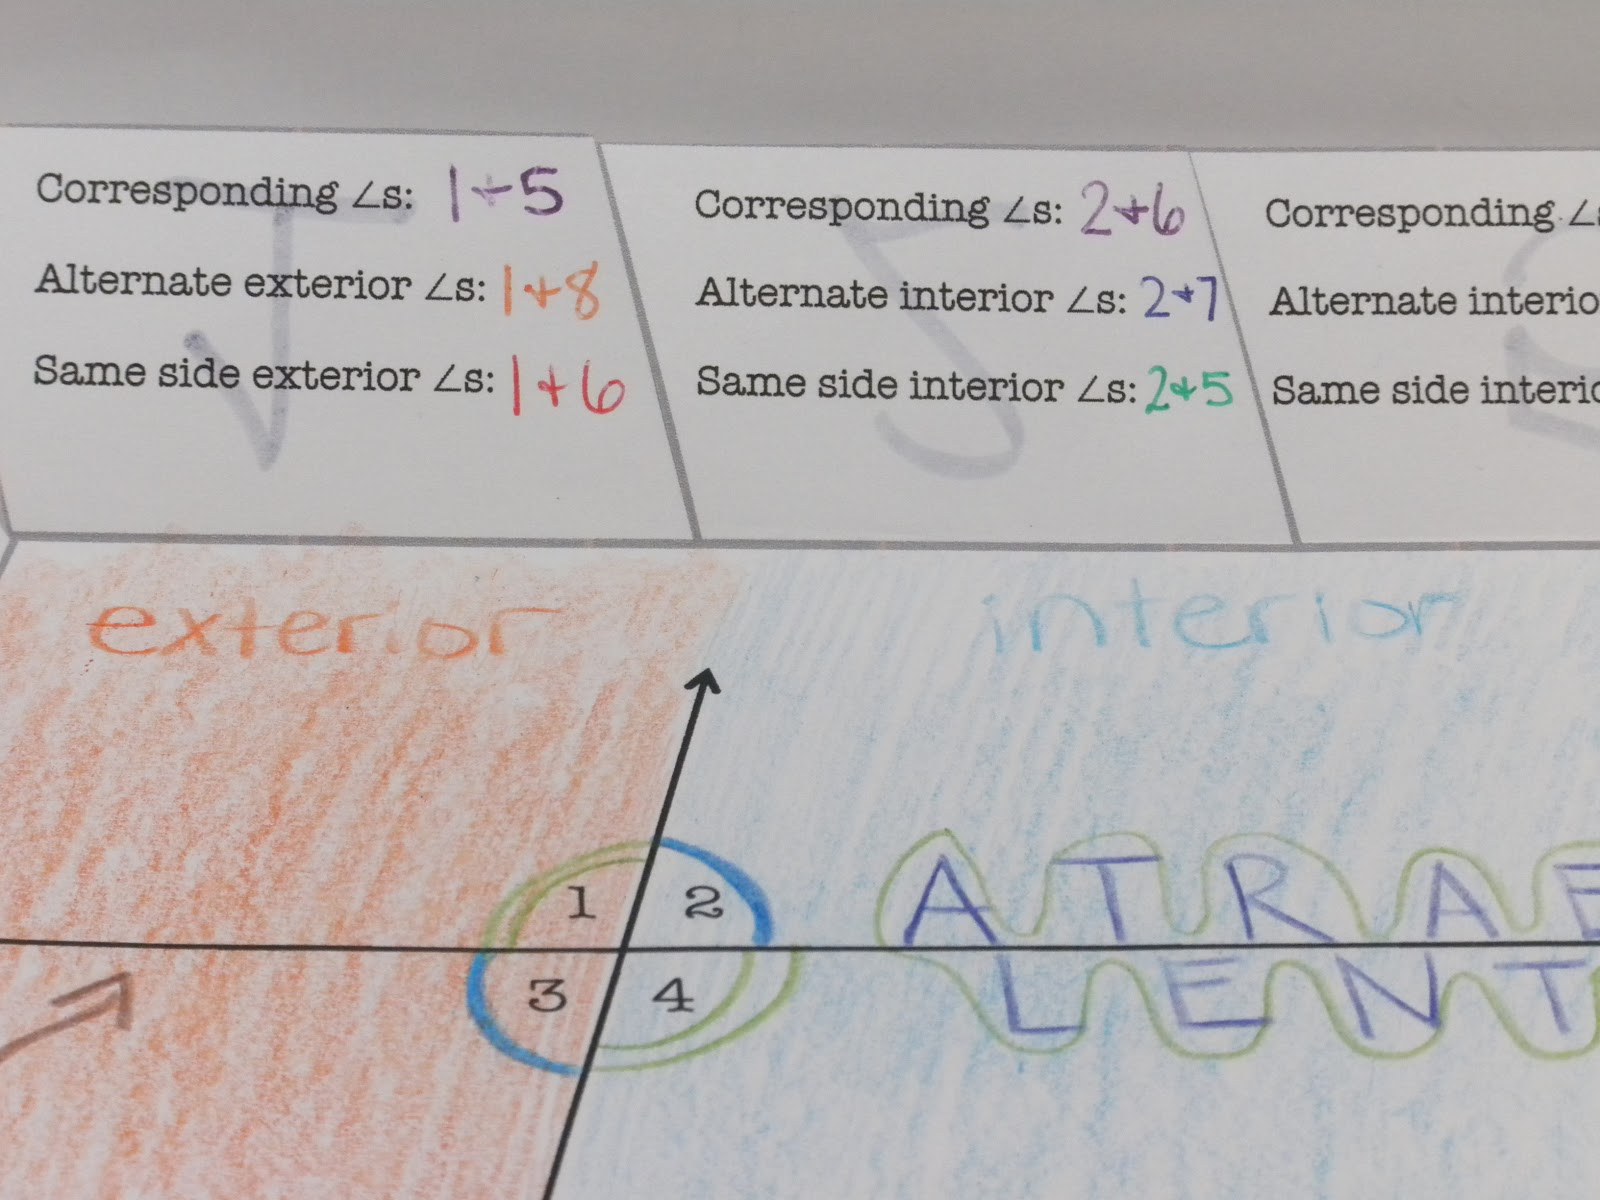 Corresponding ∠s: 1+5
Alternate exterior ∠s: 1+8
Same side exterior ∠s: 1+6
Corresponding ∠s: 2+6
Alternate interior ∠s: 2+7
Same side interior ∠s: 2+5
Corresponding
Alternate
Same side
exterior interior
1 2
3 4